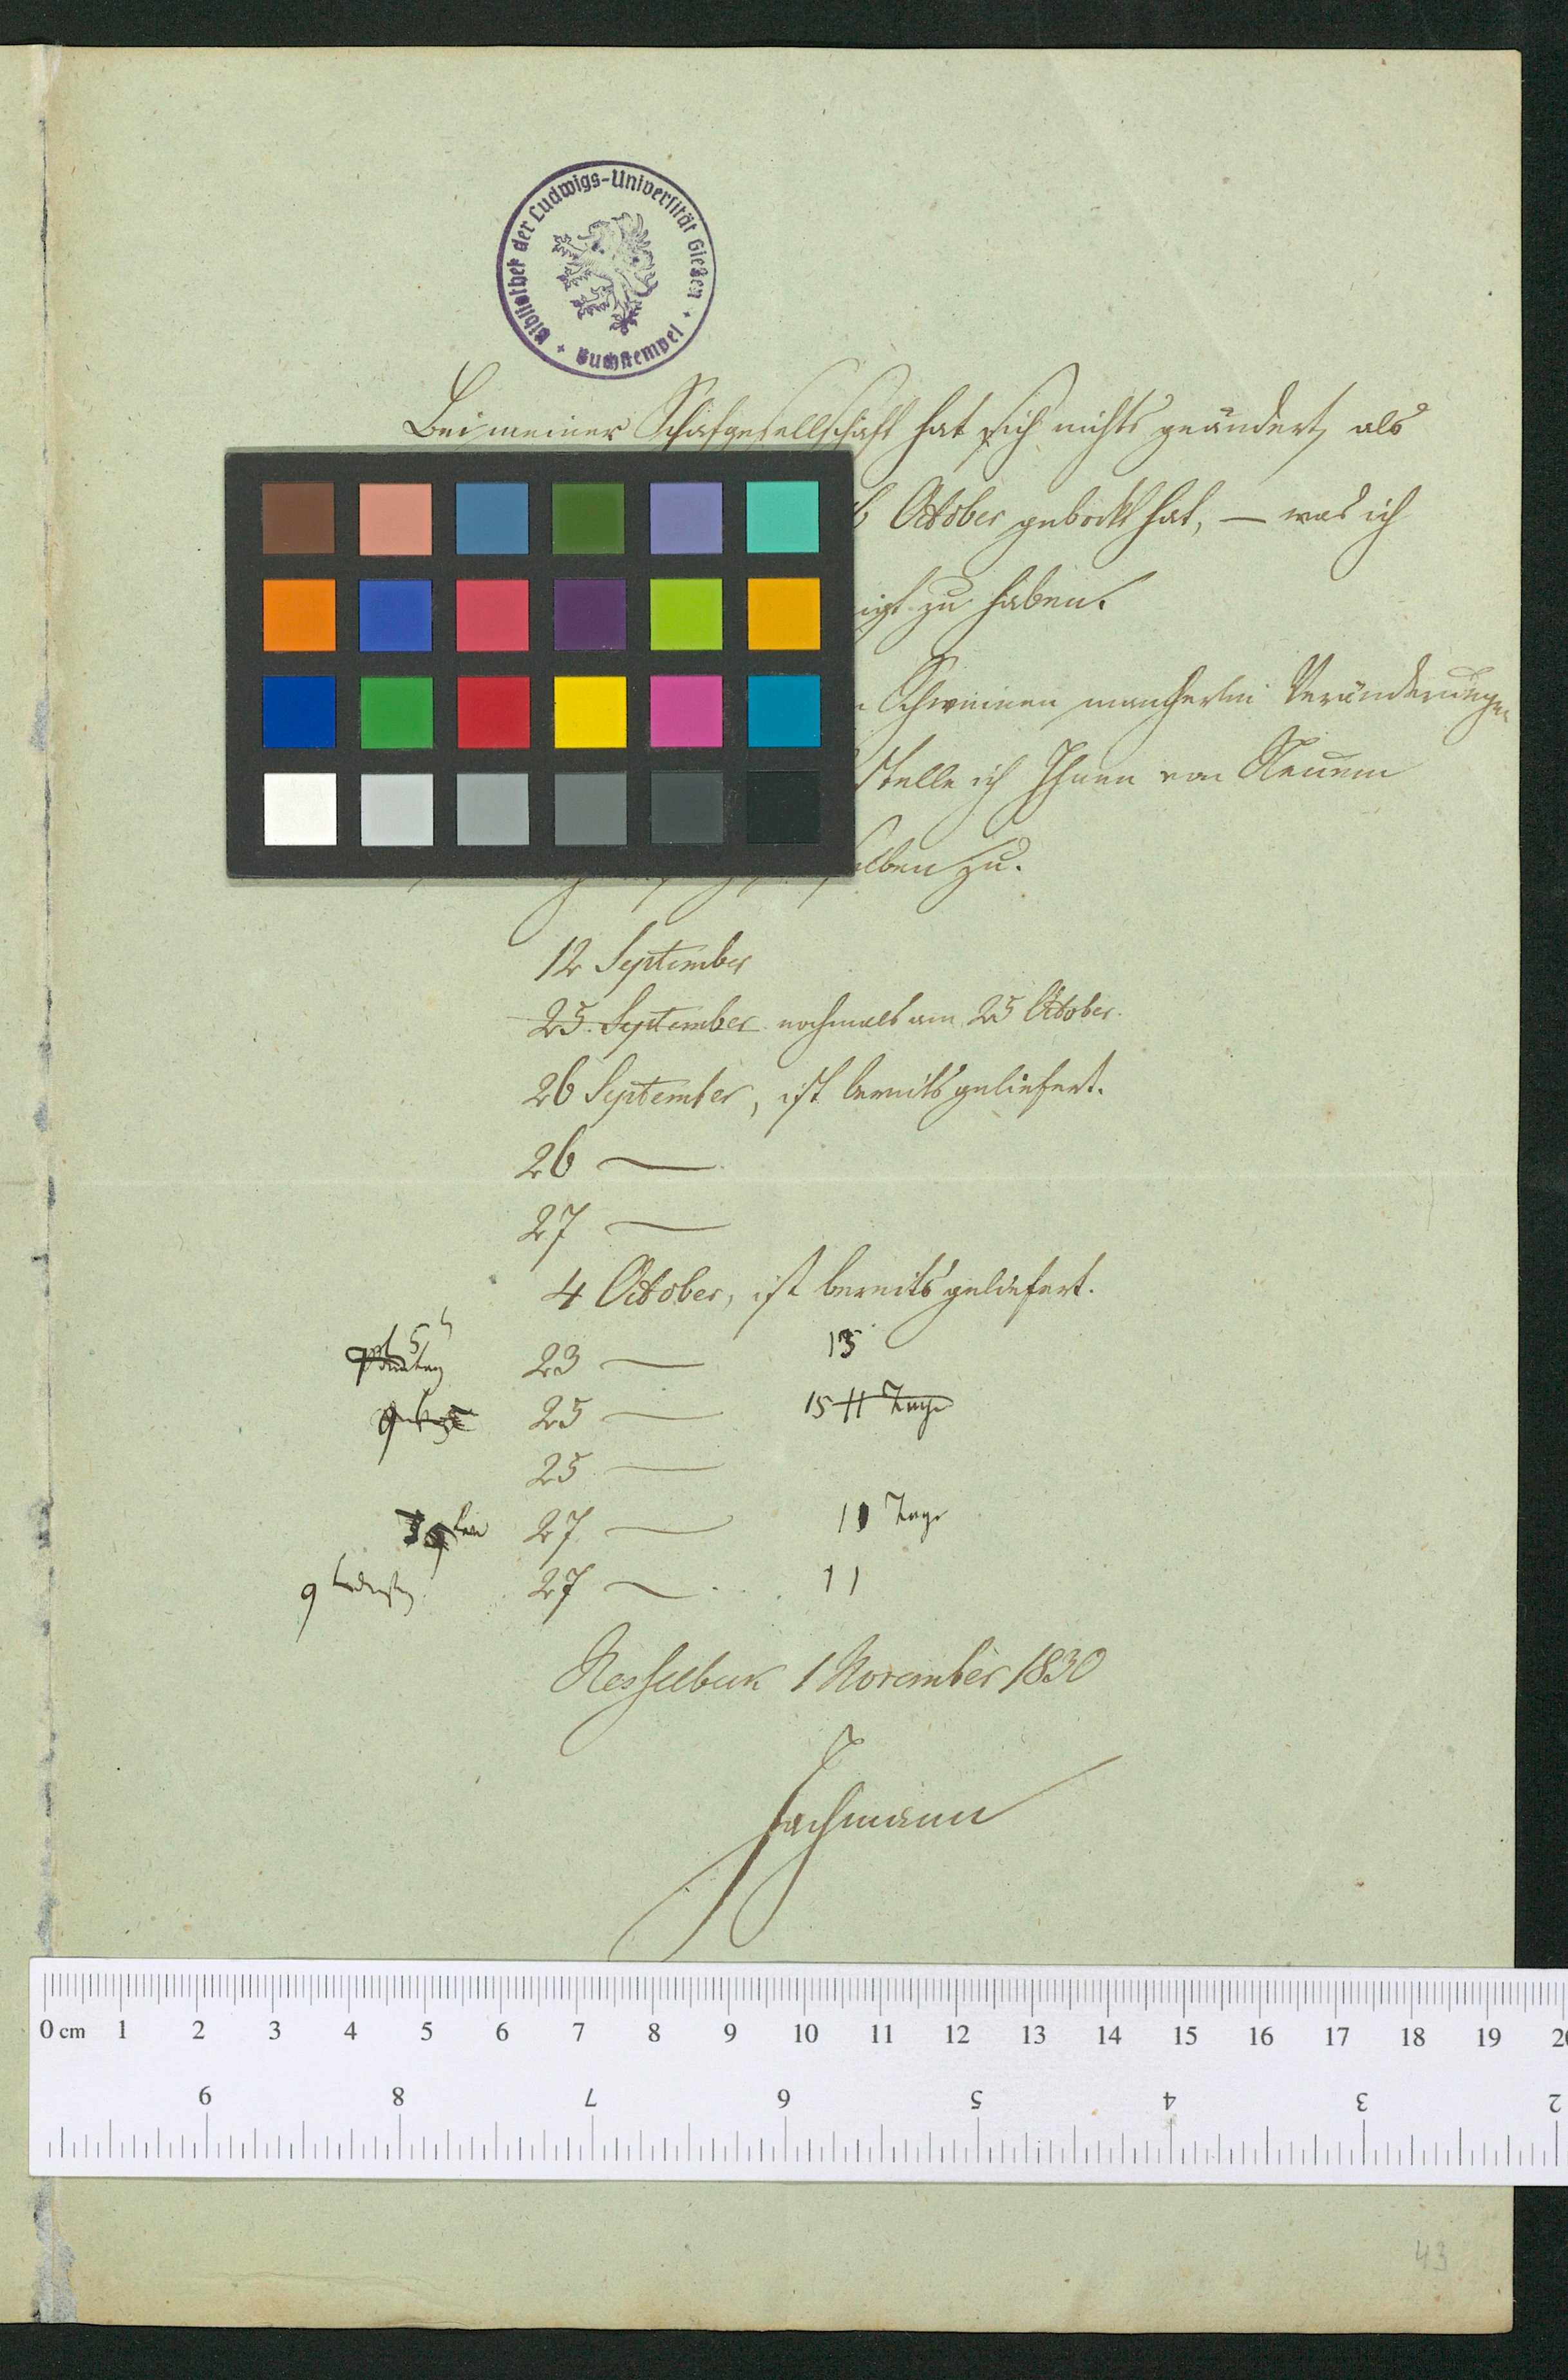 Bibliothek der Ludwigs-Universität Gießen
Buchstempel
Bei meiner Schafgesellschaft hat sich nichts geändert, als
6 October gebockt hat, — was ich
zu haben.
Schweinen mancherlei Veränderungen
stelle ich Ihnen von Neuem
zu.
12 September
25. September nochmals am 25 October.
26 September, ist bereits geliefert.
26 —
27 —
4 October, ist bereits geliefert.
23 — 13
25 — 15 11 Tage
25 —
27 — 11 Tage
9 27 — 11
1 November 1830
Jachmann
0 cm 1 2 3 4 5 6 7 8 9 10 11 12 13 14 15 16 17 18 19 20
9 8 7 6 5 4 3 2
43